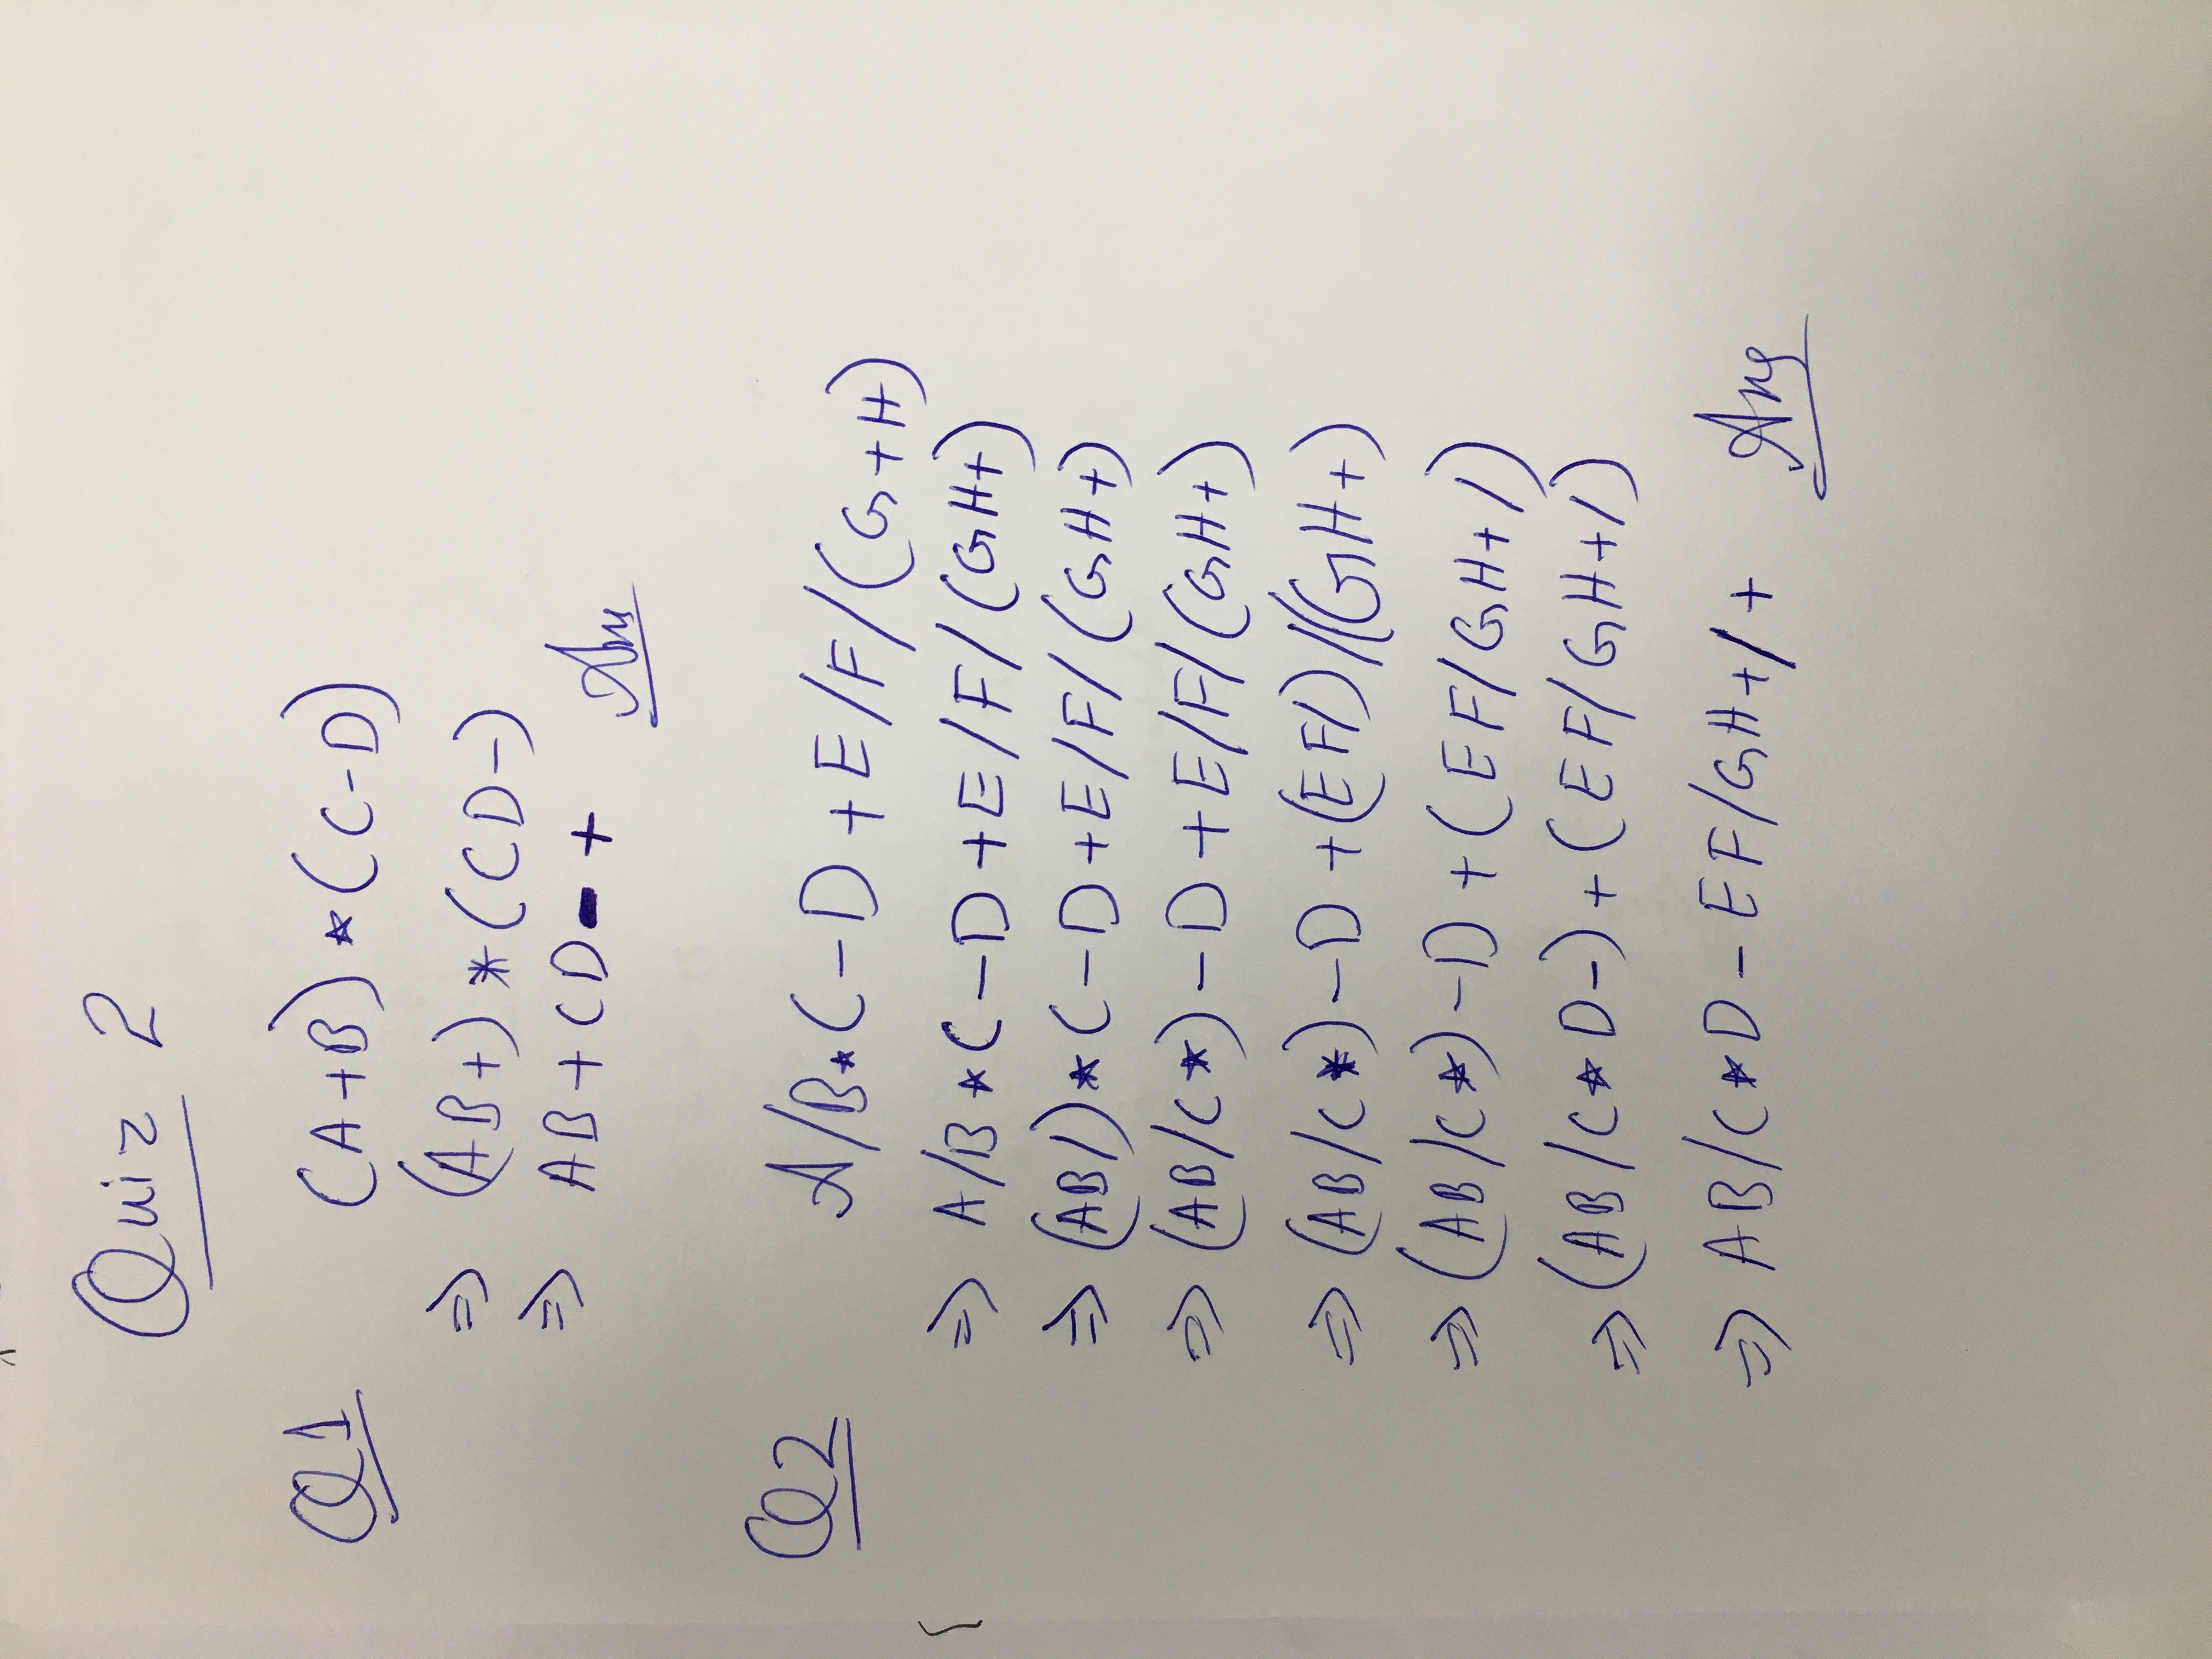 Quiz 2
Q1 (A+B)*(C-D)
⇒ (AB+)*(CD-)
⇒ AB+CD-+ Ans
Q2 A/B*C-D+E/F/(G+H)
⇒ A/B*C-D+E/F/(GH+)
⇒ (AB/)*C-D+E/F/(GH+)
⇒ (AB/C*)-D+E/F/(GH+)
⇒ (AB/C*)-D+(EF/)/(GH+)
⇒ (AB/C*)-D+(EF/GH+/)
⇒ (AB/C*D-)+(EF/GH+/)
⇒ AB/C*D-EF/GH+/+ Ans